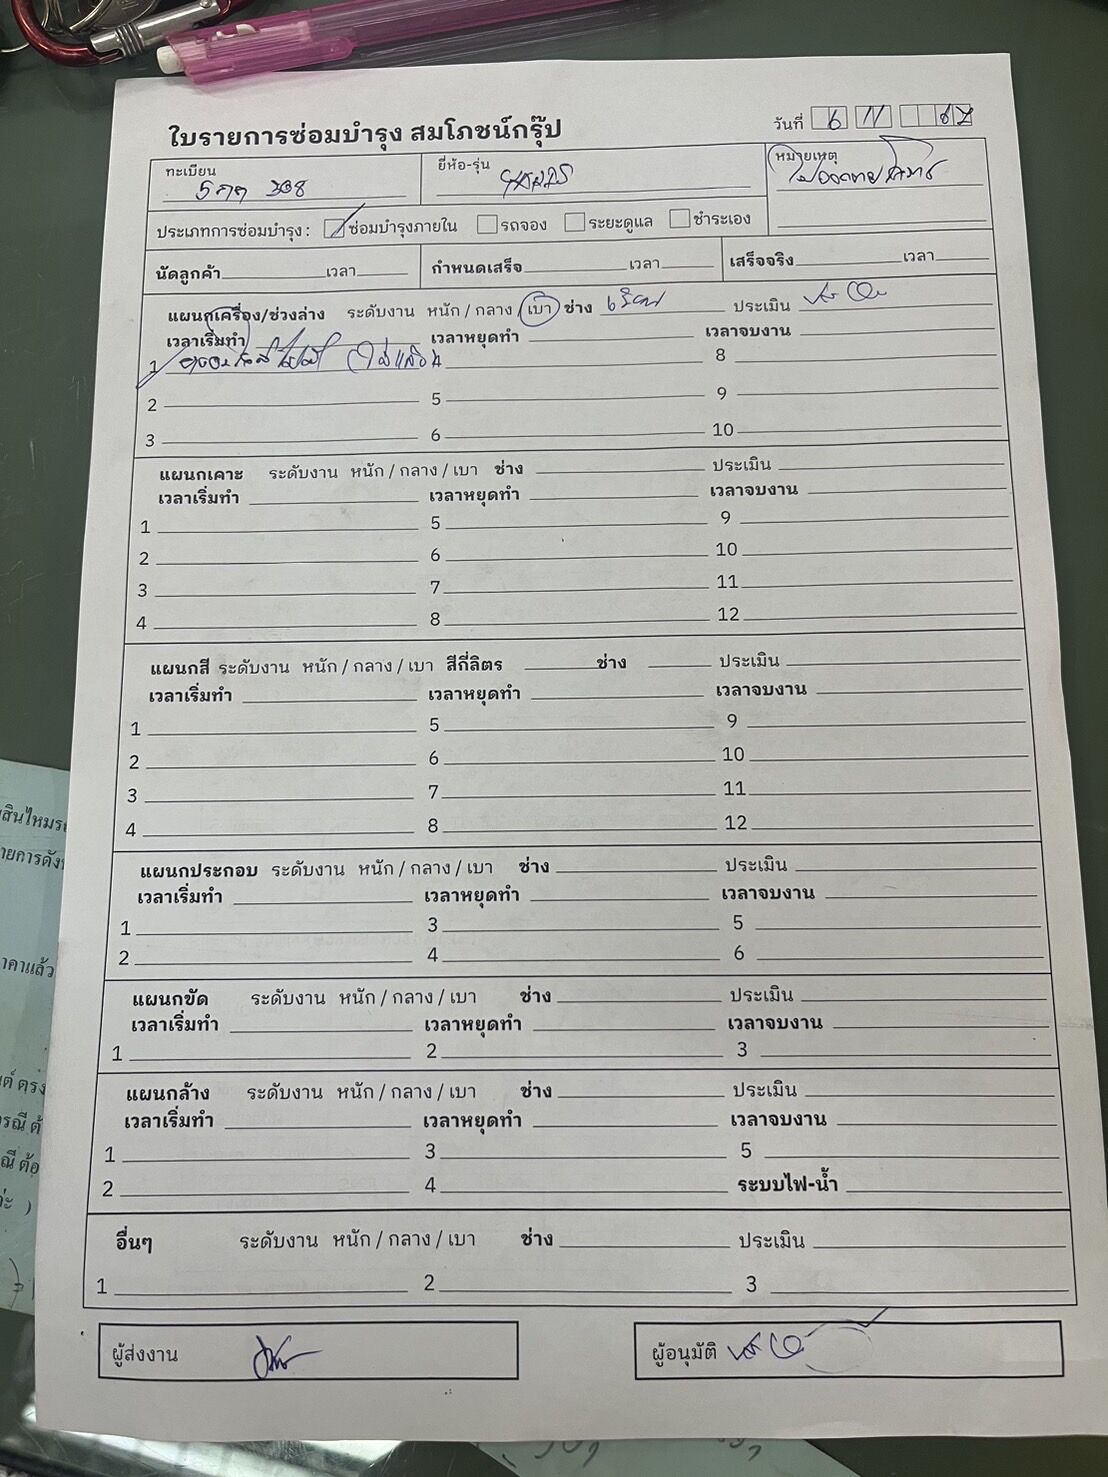 ใบรายการซ่อมบำรุง สมโภชน์กรุ๊ป
วันที่ 6 11 67
ทะเบียน
5 กฅ 338
ยี่ห้อ-รุ่น YARIS
หมายเหตุ
ประเภทการซ่อมบำรุง : ซ่อมบำรุงภายใน รถจอง ระยะดูแล ชำระเอง
นัดลูกค้า เวลา กำหนดเสร็จ เวลา เสร็จจริง เวลา
แผนกเครื่อง/ช่วงล่าง ระดับงาน หนัก / กลาง / เบา ช่าง ประเมิน
เวลาเริ่มทำ เวลาหยุดทำ เวลาจบงาน
1 4 8
2 5 9
3 6 10
แผนกเคาะ ระดับงาน หนัก / กลาง / เบา ช่าง ประเมิน
เวลาเริ่มทำ เวลาหยุดทำ เวลาจบงาน
1 5 9
2 6 10
3 7 11
4 8 12
แผนกสี ระดับงาน หนัก / กลาง / เบา สีกี่ลิตร ช่าง ประเมิน
เวลาเริ่มทำ เวลาหยุดทำ เวลาจบงาน
1 5 9
2 6 10
3 7 11
4 8 12
แผนกประกอบ ระดับงาน หนัก / กลาง / เบา ช่าง ประเมิน
เวลาเริ่มทำ เวลาหยุดทำ เวลาจบงาน
1 3 5
2 4 6
แผนกขัด ระดับงาน หนัก / กลาง / เบา ช่าง ประเมิน
เวลาเริ่มทำ เวลาหยุดทำ เวลาจบงาน
1 2 3
แผนกล้าง ระดับงาน หนัก / กลาง / เบา ช่าง ประเมิน
เวลาเริ่มทำ เวลาหยุดทำ เวลาจบงาน
1 3 5
2 4 ระบบไฟ-น้ำ
อื่นๆ ระดับงาน หนัก / กลาง / เบา ช่าง ประเมิน
1 2 3
ผู้ส่งงาน
ผู้อนุมัติ